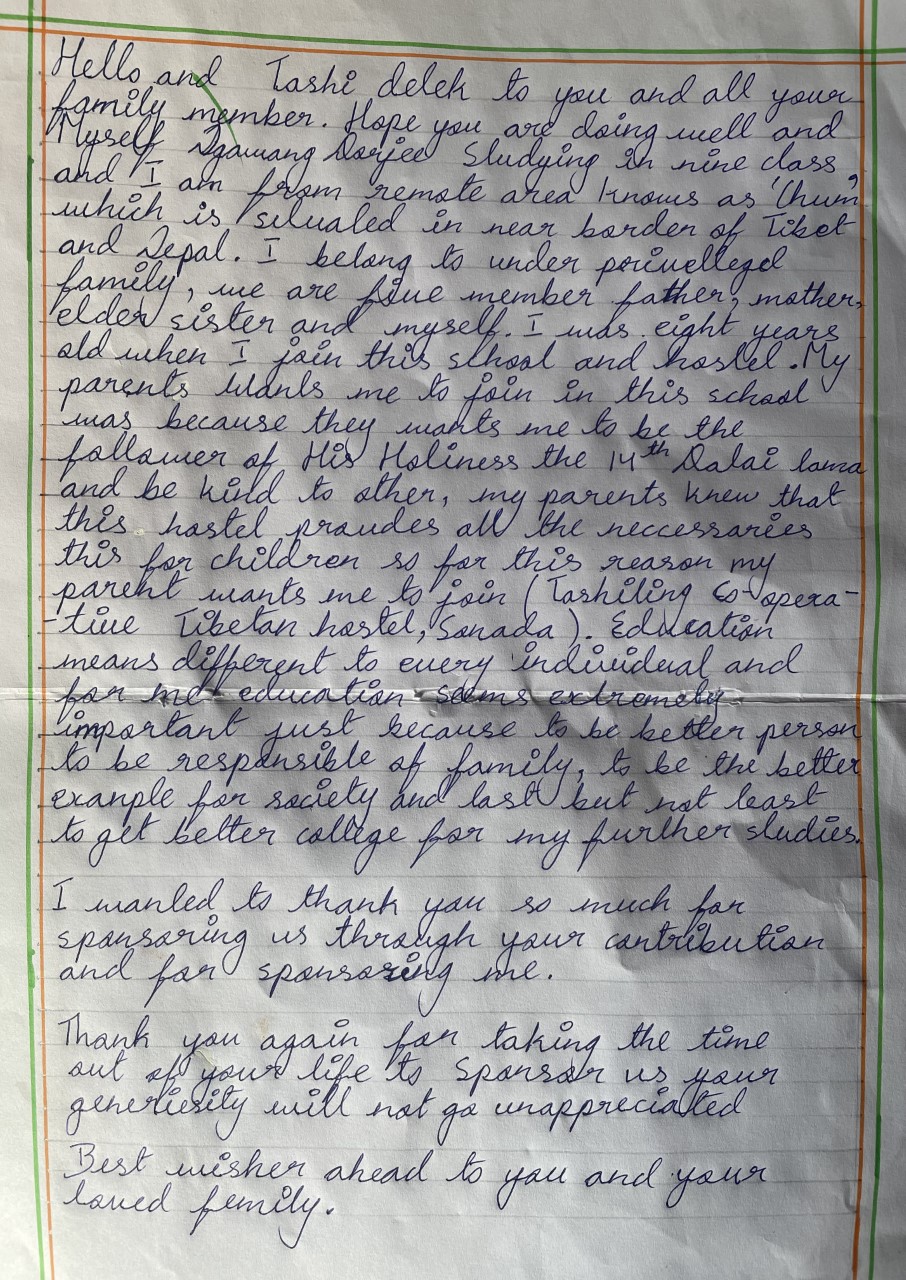 Hello and Tashi delek to you and all your
family member. Hope you are doing well and
Myself Ngawang Dorjee Studying in nine class
and I am from remote area knows as 'Chum'
which is situated in near border of Tibet
and Nepal. I belong to under privelleged
family, we are five member father, mother,
elder sister and myself. I was eight years
old when I join this school and hostel. My
parents wants me to join in this school
was because they wants me to be the
follower of His Holiness the 14th Dalai lama
and be kind to other, my parents knew that
this hostel provides all the neccessaries
this for children so for this reason my
parent wants me to join (Tashiling Co-opera-
-tive Tibetan hostel, Sonada). Education
means different to every individual and
for me education seems extremely
important just because to be better person
to be responsible of family, to be the better
exanple for society and last but not least
to get better college for my further studies.
I wanted to thank you so much for
sponsoring us through your contribution
and for sponsoring me.
Thank you again for taking the time
out of your life to Sponsor us your
generiosity will not go unappreciated
Best wisher ahead to you and your
loved femily.